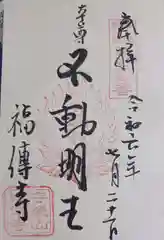 奉拝
令和六年
月二十一日
本尊
不動明王
福傳寺